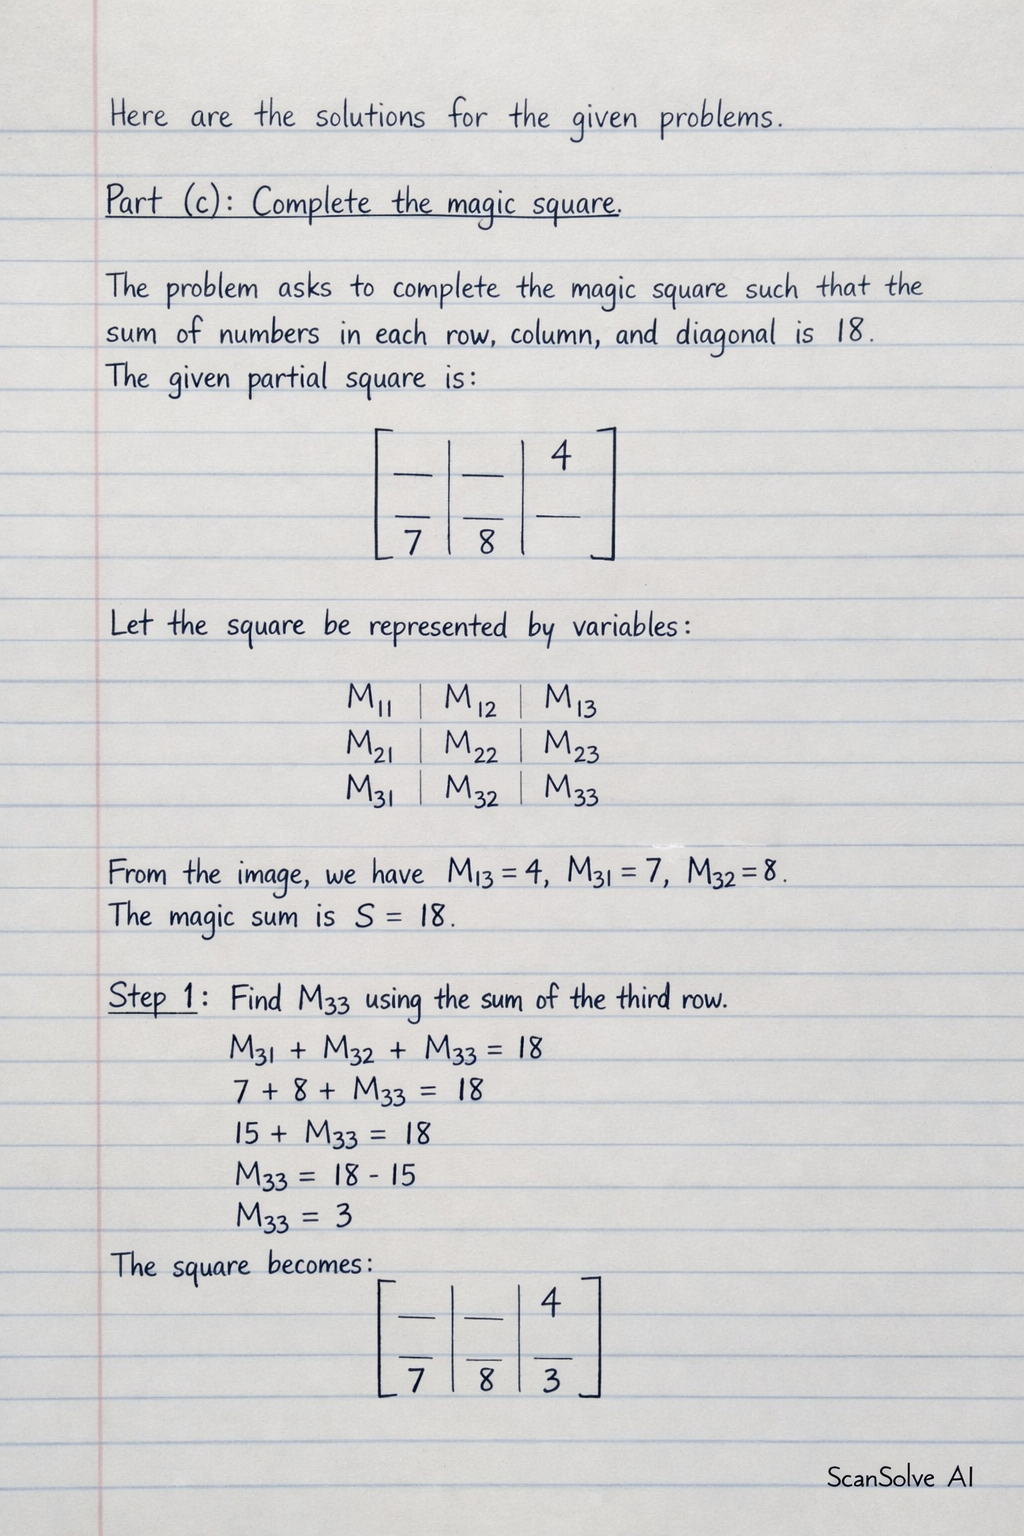 Here are the solutions for the given problems.
Part (c): Complete the magic square.
The problem asks to complete the magic square such that the
sum of numbers in each row, column, and diagonal is 18.
The given partial square is:
4
7 8
Let the square be represented by variables:
M₁₁ | M₁₂ | M₁₃
M₂₁ | M₂₂ | M₂₃
M₃₁ | M₃₂ | M₃₃
From the image, we have M₁₃ = 4, M₃₁ = 7, M₃₂ = 8.
The magic sum is S = 18.
Step 1: Find M₃₃ using the sum of the third row.
M₃₁ + M₃₂ + M₃₃ = 18
7 + 8 + M₃₃ = 18
15 + M₃₃ = 18
M₃₃ = 18 - 15
M₃₃ = 3
The square becomes:
4
7 8 3
ScanSolve AI